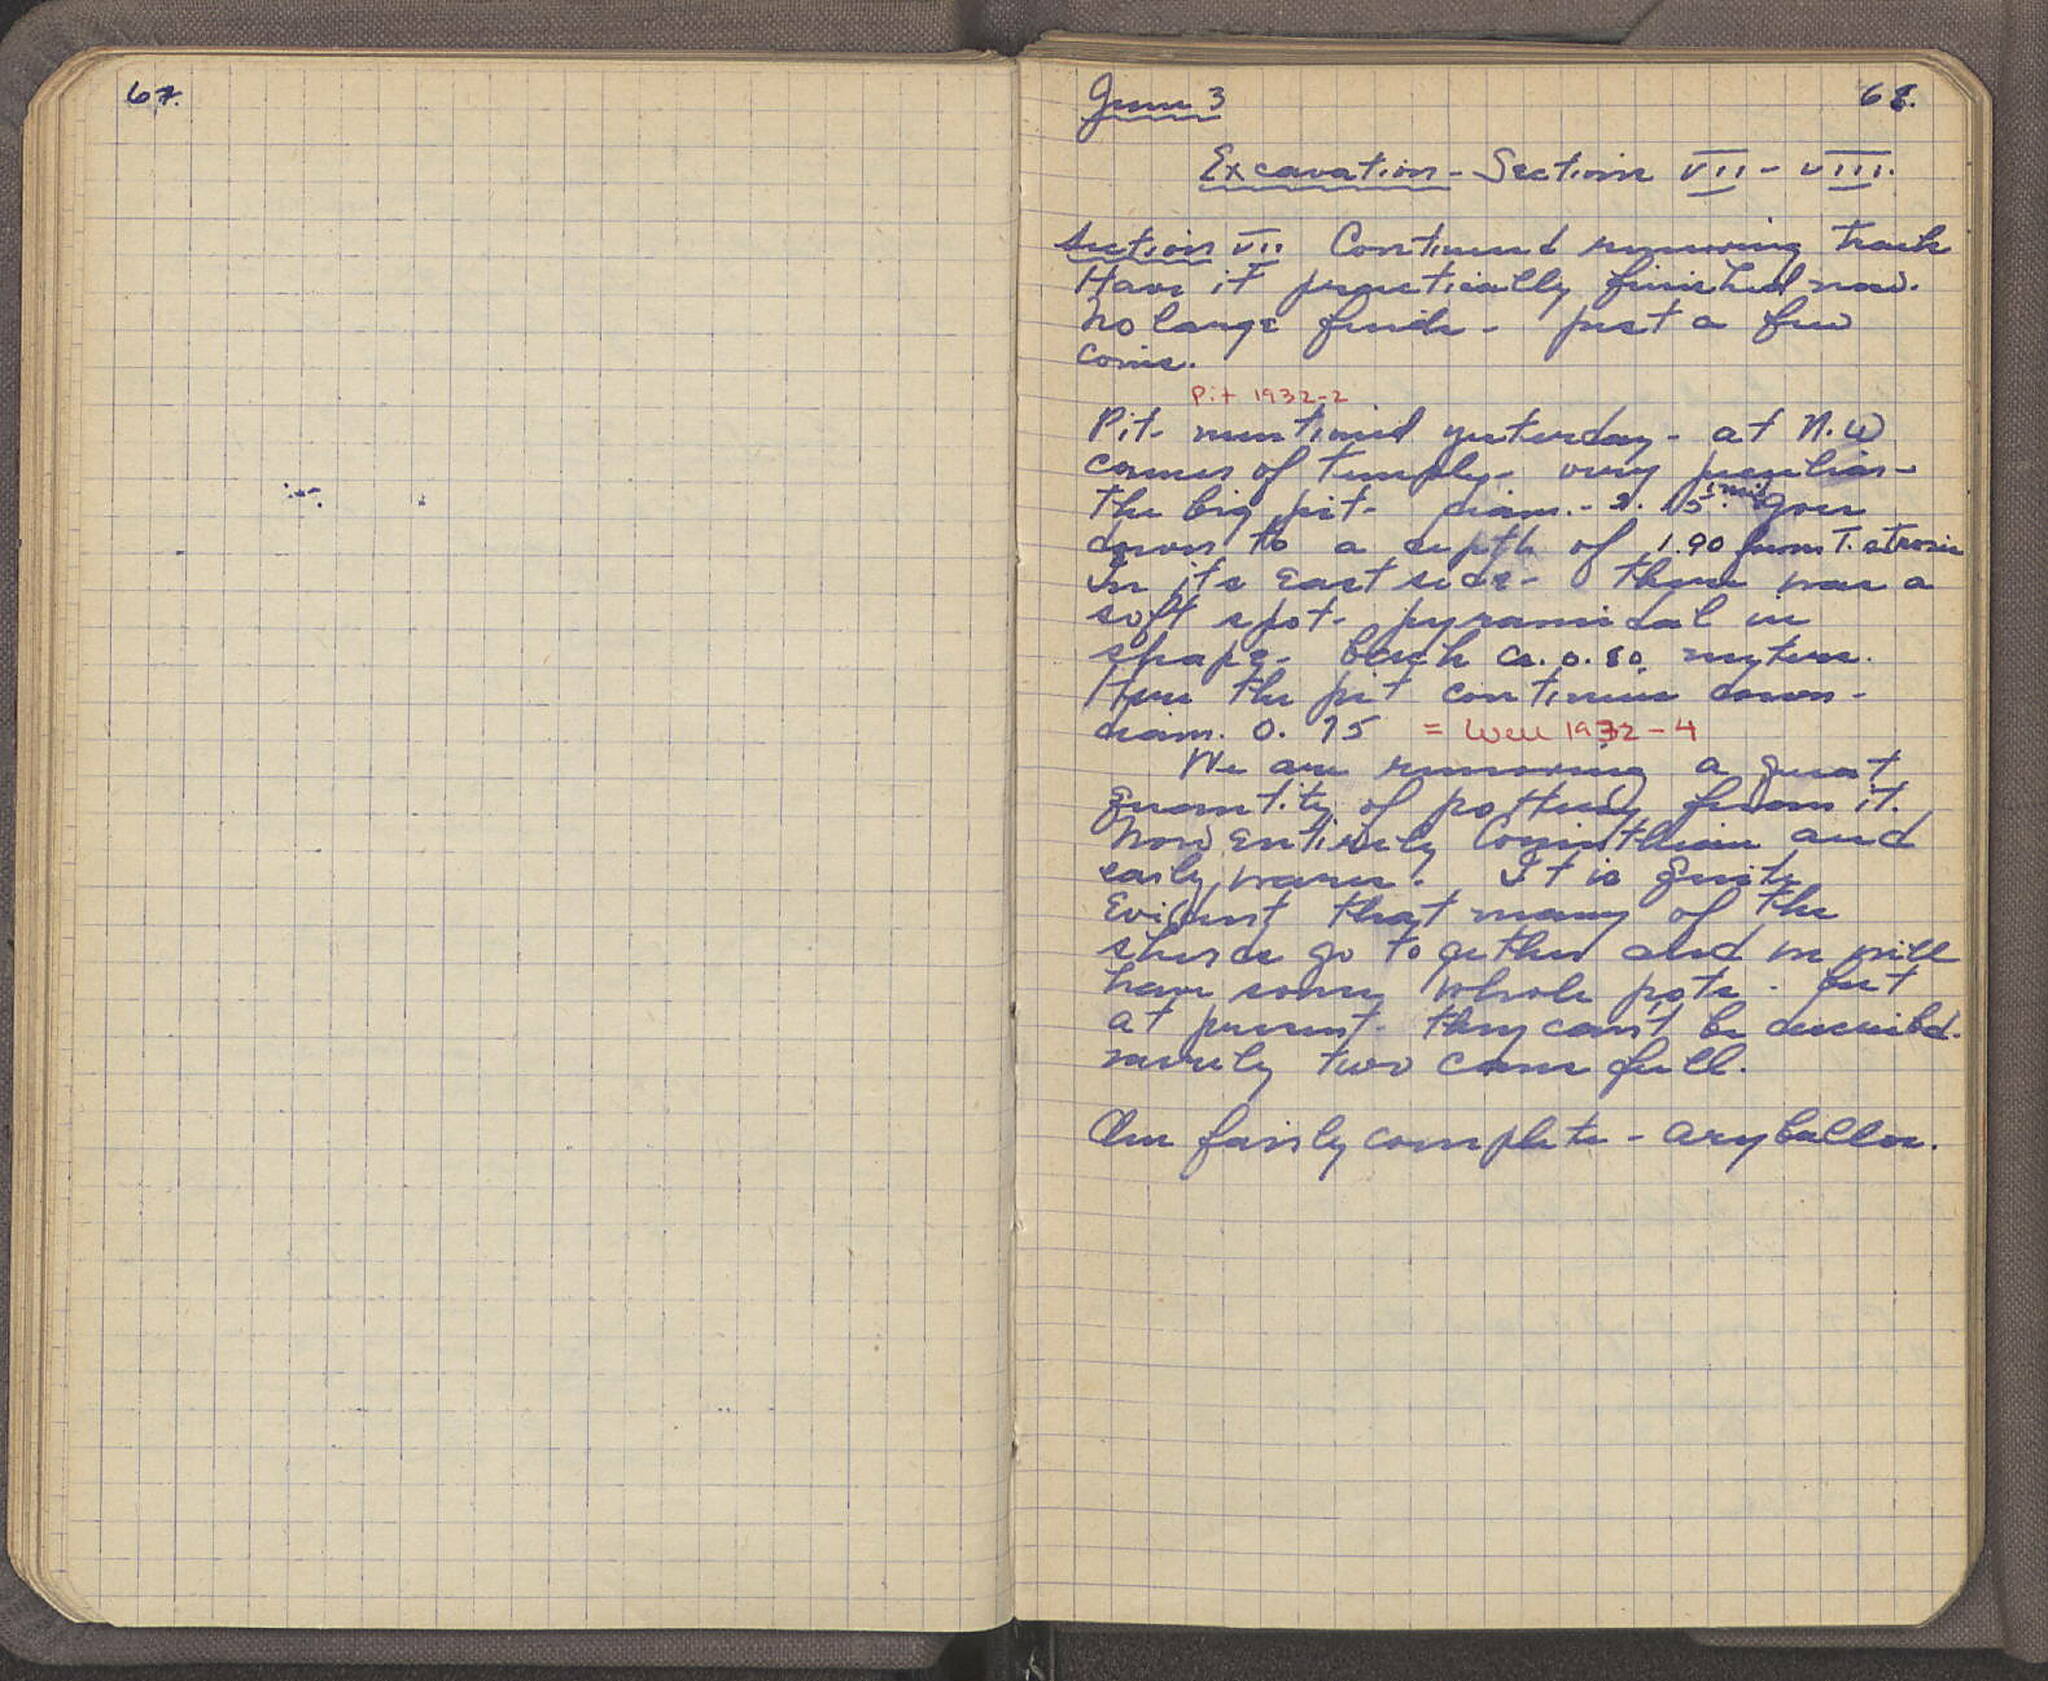 67.
June 3
68.
Excavation - Section VII - VIII.
Section VII Continued removing track
Have it practically finished now.
No large finds - just a few
coins.
Pit 1932-2
Pit - mentioned yesterday - at N.W
corner of temple - very peculiar -
the big pit - diam. - 2.15. goes
down to a depth of 1.90 from T. strosis
In its east side - there was a
soft spot - pyramidal in
shape - each ca. 0.80 meters.
Here the pit continues down -
diam. 0.95 = Well 1932-4
We are removing a great
quantity of pottery from it.
Now entirely Corinthian and
early wares. It is quite
evident that many of the
sherds go together and we will
have some whole pots - but
at present - they can't be described.
merely two cans full.
One fairly complete - aryballos.